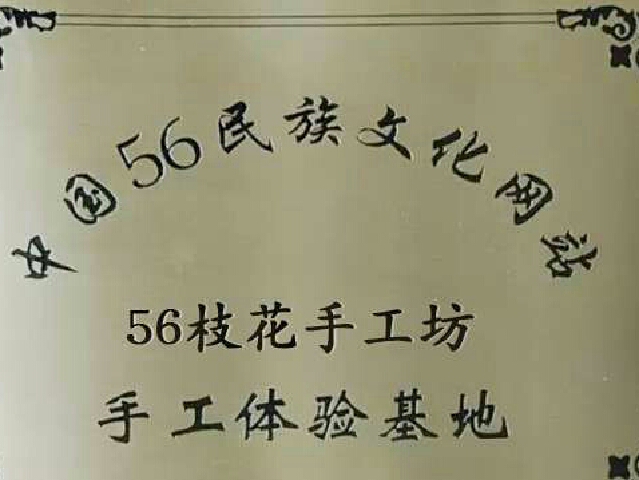 中国56民族文化网站
56枝花手工坊
手工体验基地